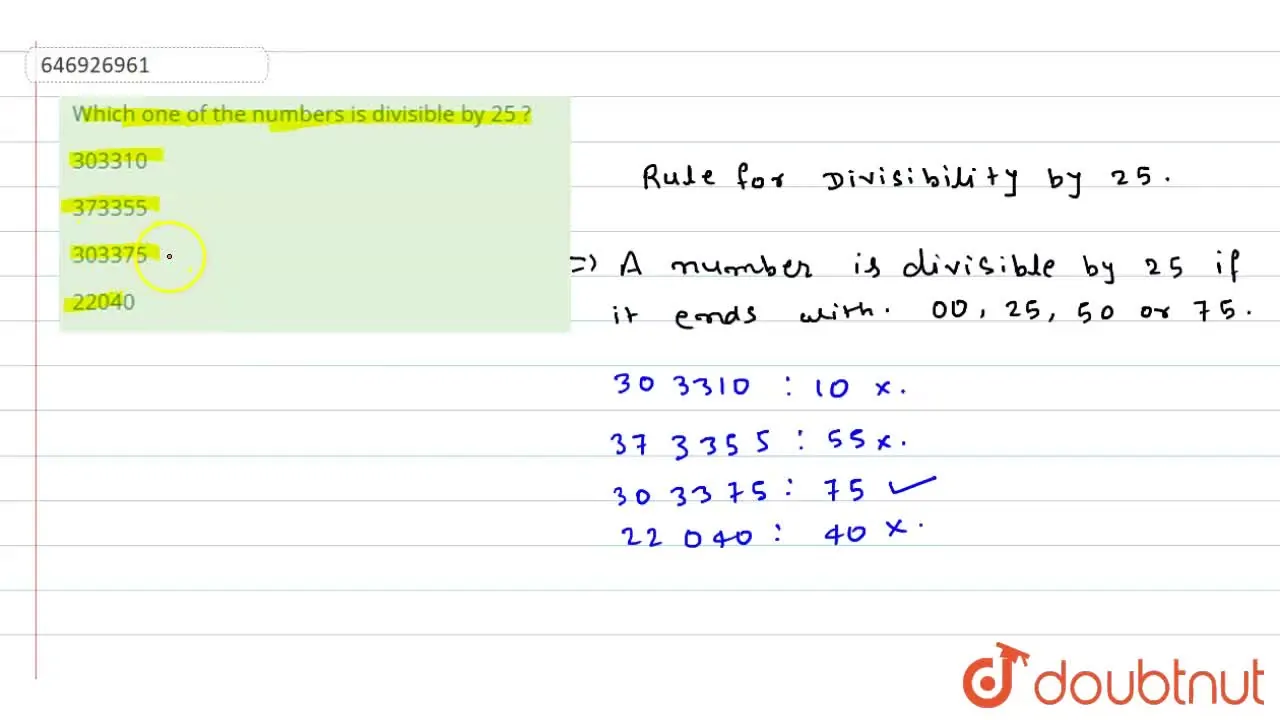 646926961
Which one of the numbers is divisible by 25 ?
303310
373355
303375
22040
Rule for Divisibility by 25.
=> A number is divisible by 25 if
it ends with. 00, 25, 50 or 75.
303310 : 10 x.
373355 : 55 x.
303375 : 75 ✓
22040 : 40 x.
doubtnut